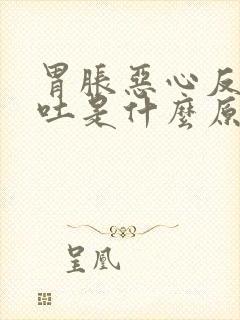 胃脹惡心反
吐是什麼原
呈凰